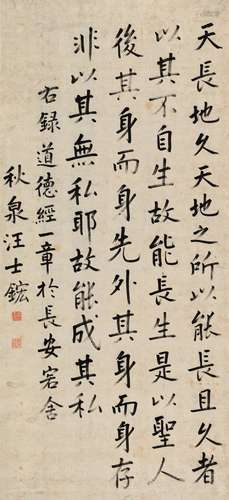 天長地久天地之所以能長且久者
以其不自生故能長生是以聖人
後其身而身先外其身而身存
非以其無私耶故能成其私
右録道德經一章於長安宕舍
秋泉汪士鋐